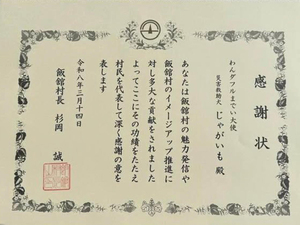 感謝状
わんダフルまでい大使
災害救助犬 じゃがいも 殿
あなたは飯舘村の魅力発信や
飯舘村のイメージアップ推進に
対し多大な貢献をされました
よってここにその功績をたたえ
村民を代表して深く感謝の意を
表します
令和八年三月十四日
飯舘村長 杉岡 誠